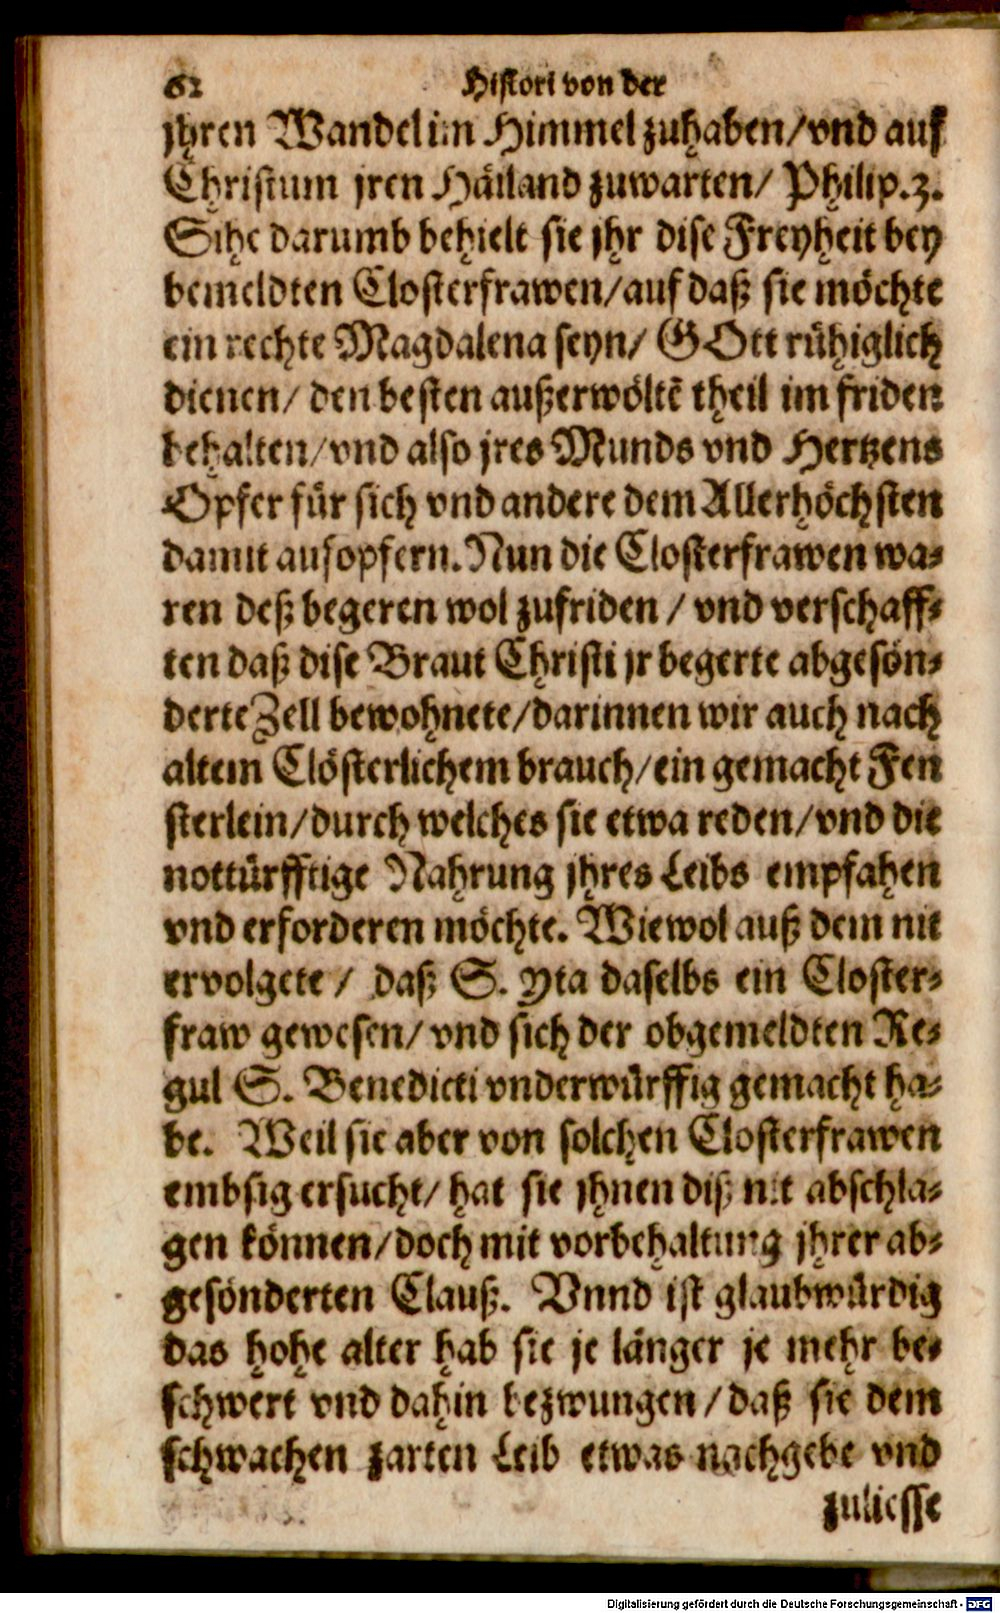 62 Histori von der
jhren Wandel im Himmel zuhaben/vnd auf
Christum jren Häiland zuwarten/ Philip.3.
Sihe darumb behielt sie jhr dise Freyheit bey
bemeldten Closterfrawen/auf daß sie möchte
ein rechte Magdalena seyn/ GOtt rühiglich
dienen/ den besten außerwöltē theil im friden
behalten/vnd also jres Munds vnd Hertzens
Opfer für sich vnd andere dem Allerhöchsten
damit aufopfern. Nun die Closterfrawen wa-
ren deß begeren wol zufriden / vnd verschaff-
ten daß dise Braut Christi jr begerte abgesön-
derte Zell bewohnete/darinnen wir auch nach
altem Clösterlichem brauch/ein gemacht Fen
sterlein/durch welches sie etwa reden/vnd die
nottürfftige Nahrung jhres Leibs empfahen
vnd erforderen möchte. Wiewol auß dem nit
ervolgete / daß S. Yta daselbs ein Closter-
fraw gewesen/ vnd sich der obgemeldten Re-
gul S. Benedicti vnderwürffig gemacht ha-
be. Weil sie aber von solchen Closterfrawen
embsig ersucht/ hat sie jhnen diß nit abschla-
gen können/doch mit vorbehaltung jhrer ab-
gesönderten Clauß. Vnnd ist glaubwürdig
das hohe alter hab sie je länger je mehr be-
schwert vnd dahin bezwungen /daß sie dem
schwachen zarten Leib etwas nachgebe vnd
zuliesse
Digitalisierung gefördert durch die Deutsche Forschungsgemeinschaft - DFG